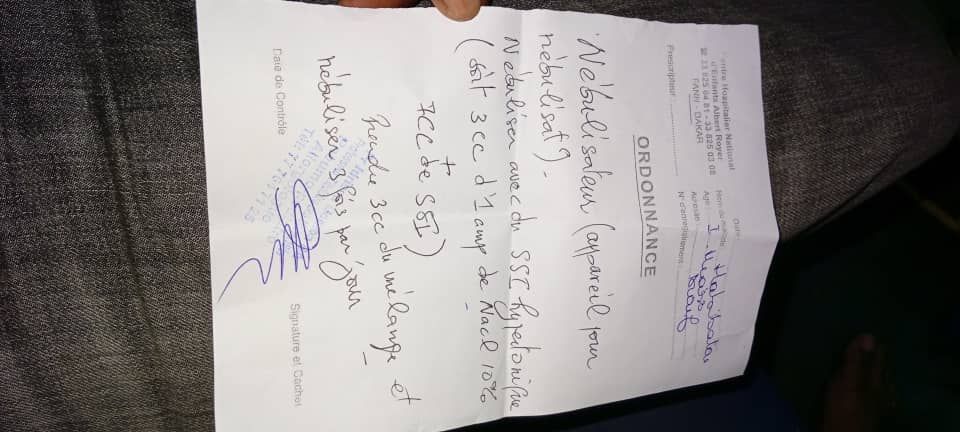 Centre Hospitalier National
d'Enfants Albert Royer
☎ 33 825 04 81 - 33 825 03 08
FANN - DAKAR
Prescripteur :
Date
Nom du malade
Age :
Adresse :
N° d'enregistrement :
ORDONNANCE
Nébulisateur (appareil pour
nébulisat°) -
Nébuliser avec du SSI hypertonique
(soit 3cc d'1 amp de Nacl 10%
+
7cc de SSI)
Prendre 3cc du mélange et
nébuliser 3 fois par jour
Date de Contrôle
Signature et Cachet